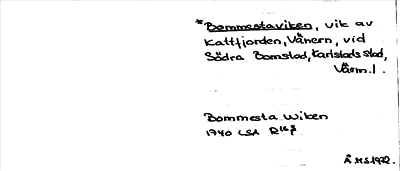 *Bommestaviken, vik av
Kattfjorden, Vänern, vid
Södra Bomstad, Karlstads stad,
Värml.
Bommesta Wiken
1740 LSA
Å HS 1972.